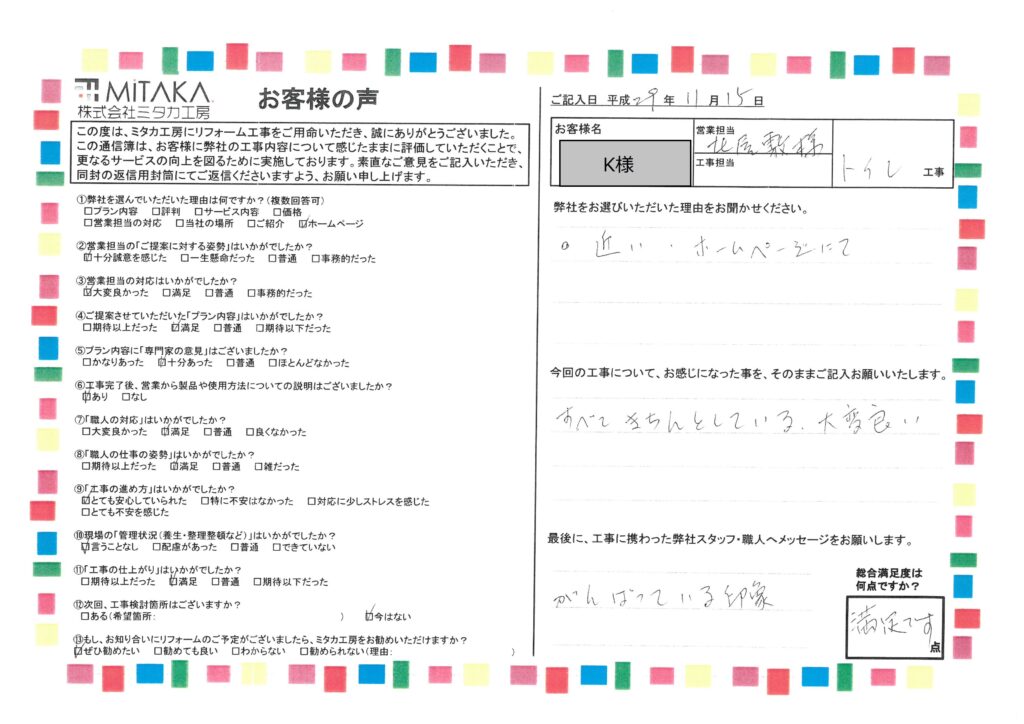 MiTAKA
株式会社ミタカ工房
お客様の声
この度は、ミタカ工房にリフォーム工事をご用命いただき、誠にありがとうございました。
この通信簿は、お客様に弊社の工事内容について感じたままに評価していただくことで、
更なるサービスの向上を図るために実施しております。素直なご意見をご記入いただき、
同封の返信用封筒にてご返信くださいますよう、お願い申し上げます。
①弊社を選んでいただいた理由は何ですか?(複数回答可)
□プラン内容 □評判 □サービス内容 □価格
□営業担当の対応 □当社の場所 □ご紹介 ☑ホームページ
②営業担当の「ご提案に対する姿勢」はいかがでしたか?
☑十分誠意を感じた □一生懸命だった □普通 □事務的だった
③営業担当の対応はいかがでしたか?
☑大変良かった □満足 □普通 □事務的だった
④ご提案させていただいた「プラン内容」はいかがでしたか?
□期待以上だった ☑満足 □普通 □期待以下だった
⑤プラン内容に「専門家の意見」はございましたか?
□かなりあった ☑十分あった □普通 □ほとんどなかった
⑥工事完了後、営業から製品や使用方法についての説明はございましたか?
☑あり □なし
⑦「職人の対応」はいかがでしたか?
□大変良かった ☑満足 □普通 □良くなかった
⑧「職人の仕事の姿勢」はいかがでしたか?
□期待以上だった ☑満足 □普通 □雑だった
⑨「工事の進め方」はいかがでしたか?
☑とても安心していられた □特に不安はなかった □対応に少しストレスを感じた
□とても不安を感じた
⑩現場の「管理状況(養生・整理整頓など)」はいかがでしたか?
☑言うことなし □配慮があった □普通 □できていない
⑪「工事の仕上がり」はいかがでしたか?
□期待以上だった ☑満足 □普通 □期待以下だった
⑫次回、工事検討箇所はございますか?
□ある(希望箇所: ) ☑今はない
⑬もし、お知り合いにリフォームのご予定がございましたら、ミタカ工房をお勧めいただけますか?
☑ぜひ勧めたい □勧めても良い □わからない □勧められない(理由: )
ご記入日 平成29年11月15日
お客様名
K様
営業担当
北屋敷様
工事担当
トイレ 工事
弊社をお選びいただいた理由をお聞かせください。
。近い・ホームページにて
今回の工事について、お感じになった事を、そのままご記入お願いいたします。
すべてきちんとしている、大変良い
最後に、工事に携わった弊社スタッフ・職人へメッセージをお願いします。
がんばっている印象
総合満足度は
何点ですか?
満足です
点